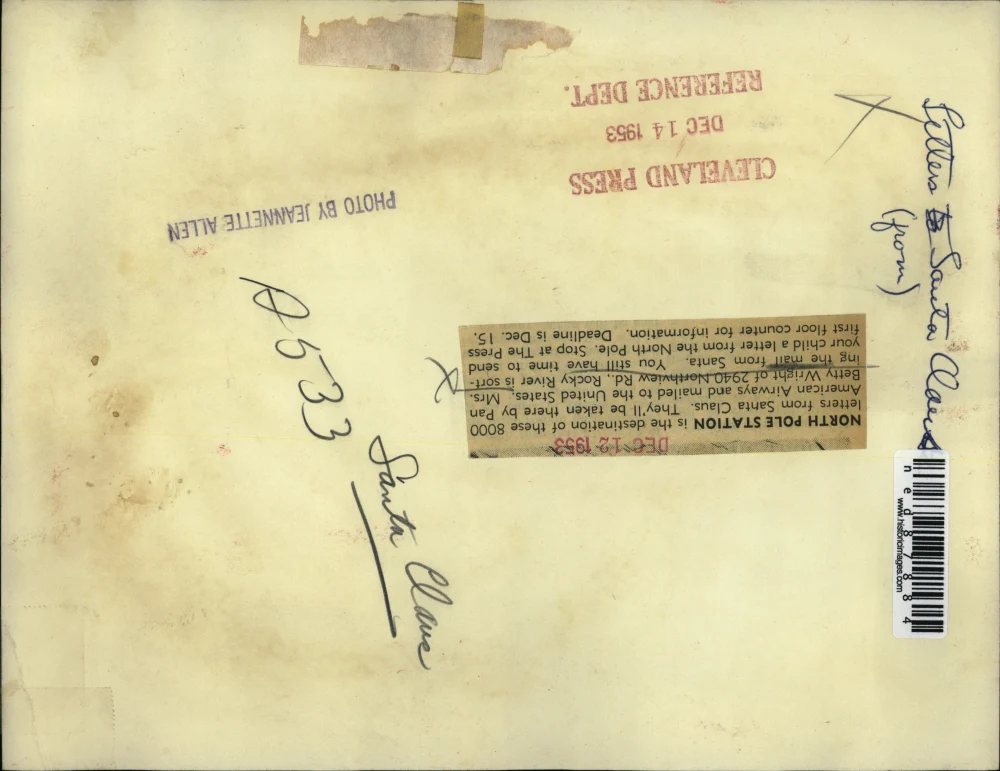 CLEVELAND PRESS
DEC 14 1953
REFERENCE DEPT.
PHOTO BY JEANNETTE ALLEN
Letters to Santa Claus
(from)
A5533
Santa Claus
DEC 12 1953
NORTH POLE STATION is the destination of these 8000
letters from Santa Claus. They'll be taken there by Pan
American Airways and mailed to the United States. Mrs.
Betty Wright of 2940 Northview Rd., Rocky River is sort-
ing the mail from Santa. You still have time to send
your child a letter from the North Pole. Stop at The Press
first floor counter for information. Deadline is Dec. 15.
ned87884
www.historicimages.com